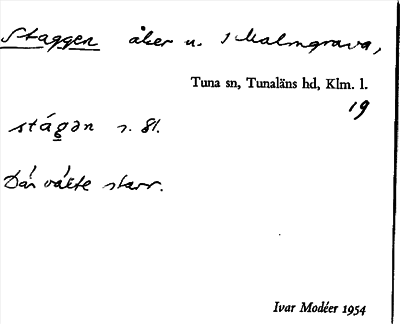 Staggen åker u. Malmgrava,
Tuna sn, Tunaläns hd, Klm. l.
19
stágən s. 81.
Där växte starr.
Ivar Modéer 1954